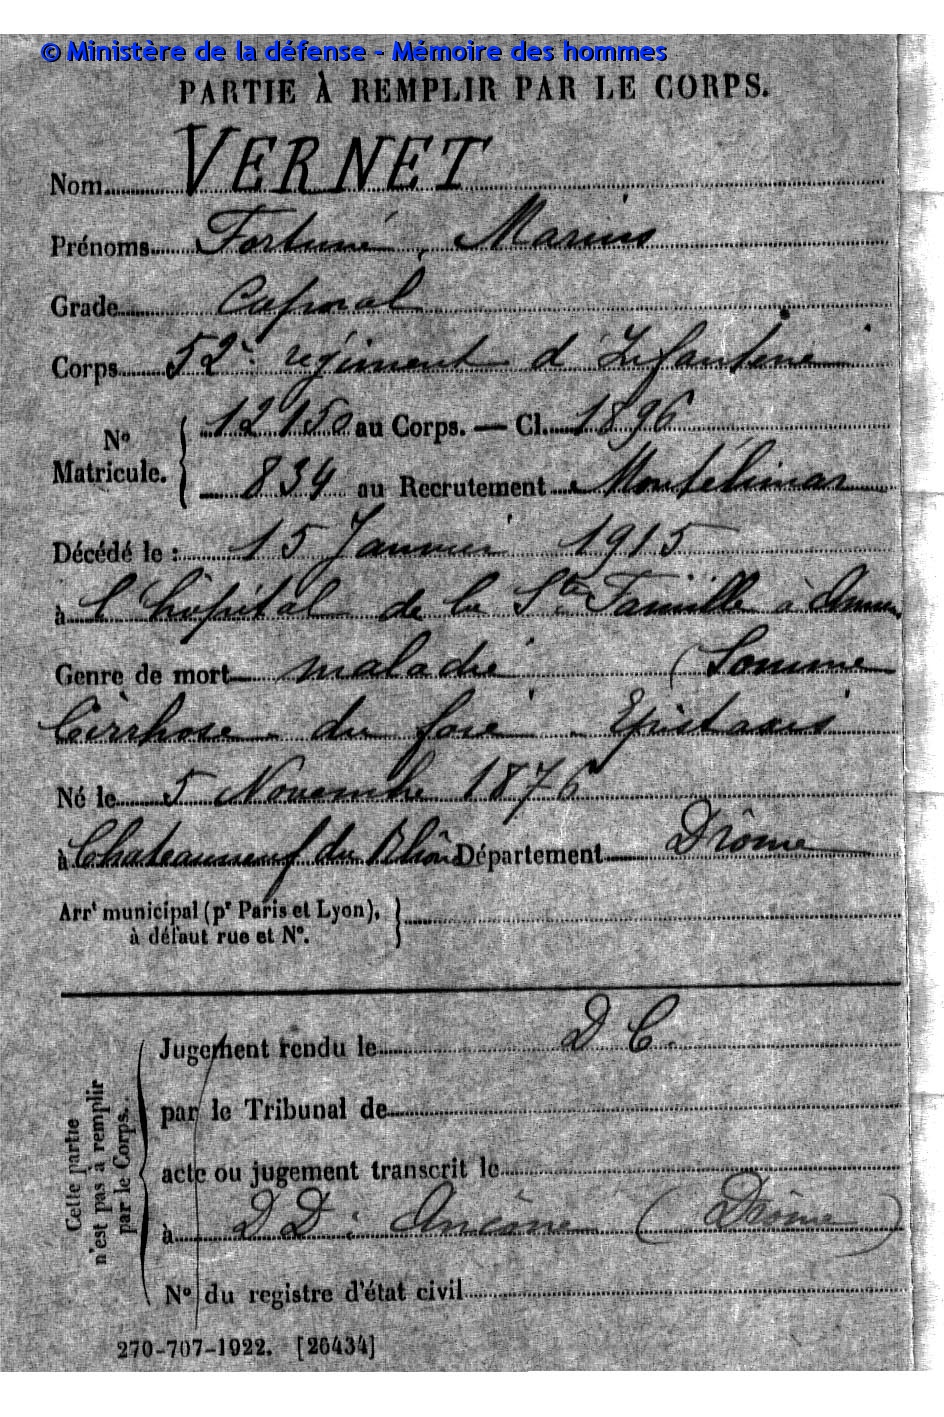 © Ministère de la défense - Mémoire des hommes
PARTIE À REMPLIR PAR LE CORPS.
Nom VERNET
Prénoms Fortuné, Marius
Grade Caporal
Corps 52e régiment d'Infanterie
No Matricule. 12150 au Corps. — Cl. 1896
834 au Recrutement Montélimar
Décédé le : 15 Janvier 1915
à l'hôpital de la Ste Famille à Amiens
Genre de mort maladie (Somme
Cirrhose du foie - Epistaxis
Né le 5 Novembre 1876
à Chateauneuf du Rhône Département Drôme
Arrt municipal (pr Paris et Lyon),
à défaut rue et No.
Cette partie n'est pas à remplir par le Corps.
Jugement rendu le D C.
par le Tribunal de
acte ou jugement transcrit le
à DD : Ancône (Drôme)
No du registre d'état civil
270-707-1922. [26434]